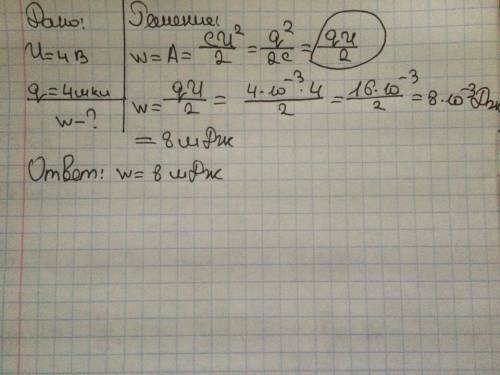 Дано:
U=4В
q=4мкл
w-?
Решение:
w=A= cU²/2 = q²/2c = qU/2
w= qU/2 = 4·10⁻³·4/2 = 16·10⁻³/2 = 8·10⁻³Дж
= 8 мДж
Ответ: w= 8 мДж